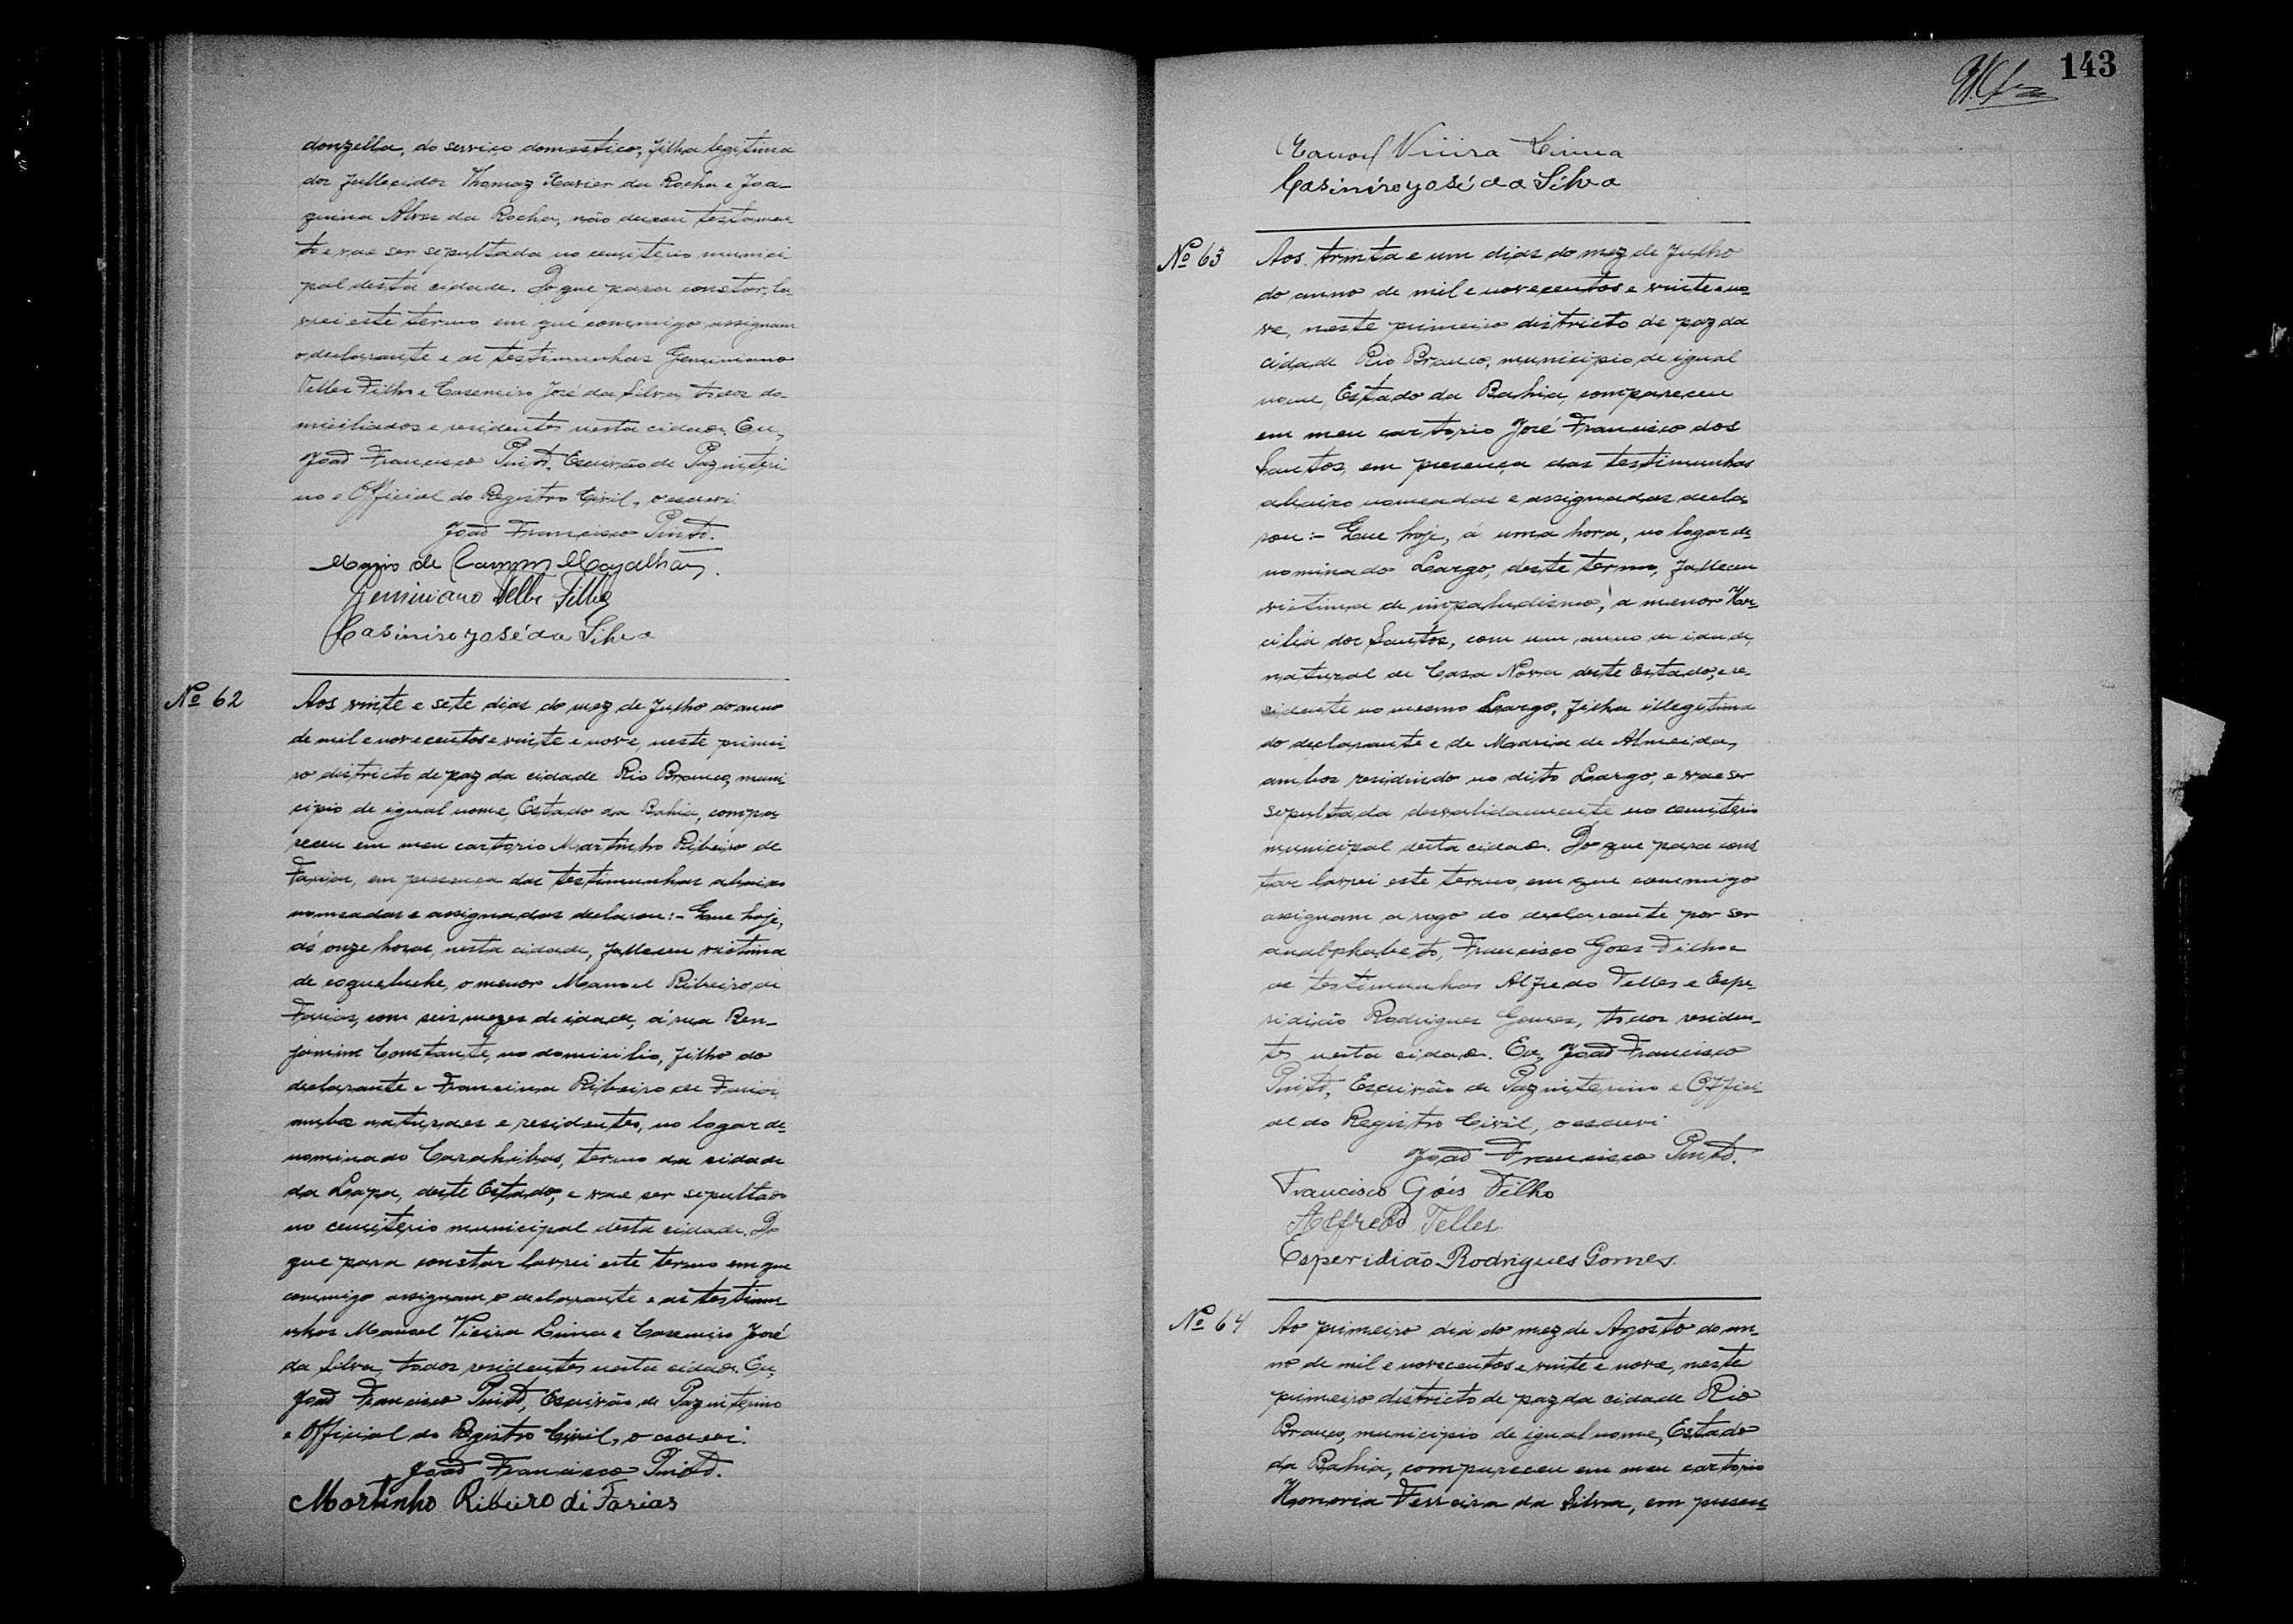 donzella, do serviço domestico, filha legitima
dos fallecidos Thomaz Xavier da Rocha e Joa-
quina Alves da Rocha, não deixou testamen
to e vae ser sepultada no cemiterio munici
pal desta cidade. Do que para constar, la-
vrei este termo em que commigo assignam
o declarante e as testimunhas Geminiano
Telles Filho e Casemiro José da Silva, todos do-
miciliados e residentes nesta cidade. Eu,
João Francisco Pinto, Escrivão de Paz interi
no e Official do Registro Civil, o escrevi.
João Francisco Pinto.
de Campos Magalhães.
Geminiano Telles Filho
Casimiro José da Silva
Nº 62
Aos vinte e sete dias do mez de Julho do anno
de mil e novecentos e vinte e nove, neste primei
ro districto de paz da cidade Rio Branco, muni
cipio de igual nome, Estado da Bahia, compa-
receu em meu cartorio Martinho Ribeiro de
Farias, em presença das testimunhas abaixo
nomeadas e assignadas declarou:- Que hoje,
ás onze horas, nesta cidade, falleceu victima
de coqueluche, o menor Manoel Ribeiro de
Farias, com seis mezes de idade, á rua Ben-
jamim Constante, no domicilio, filho do
declarante e Francina Ribeiro de Farias,
ambos naturaes e residentes, no logar de-
nominado Carahibas, termo da cidade
da Lapa, deste Estado, e vae ser sepultado
no cemiterio municipal desta cidade. Do
que para constar lavrei este termo em que
commigo assignam o declarante e as testimu-
nhas Manoel Vieira Lima e Casemiro José
da Silva, todos residentes nesta cidade. Eu,
João Francisco Pinto, Escrivão de Paz interino
e Official do Registro Civil, o escrevi.
João Francisco Pinto.
Martinho Ribeiro di Farias
143
Manoel Vieira Lima
Casimiro José da Silva
Nº 63
Aos trinta e um dias do mez de Julho
do anno de mil e novecentos e vinte e no-
ve, neste primeiro districto de paz da
cidade Rio Branco, municipio de igual
nome, Estado da Bahia, compareceu
em meu cartorio José Francisco dos
Santos, em presença das testimunhas
abaixo nomeadas e assignadas decla-
rou:- Que hoje, á uma hora, no logar de-
nominado Largo, deste termo, falleceu
victima de impaludismo, a menor Her-
cilia dos Santos, com um anno de idade,
natural de Casa Nova deste Estado, e re-
sidente no mesmo Largo, filha illegitima
do declarante e de Maria de Almeida,
ambos residindo no dito Largo, e vae ser
sepultada desvalidamente no cemiterio
municipal desta cidade. Do que para cons
tar lavrei este termo, em que commigo
assignam a rogo do declarante por ser
analphabeto, Francisco Goes Filho e
as testimunhas Alfredo Telles e Espe-
ridião Rodrigues Gomes, todos residen-
tes nesta cidade. Eu, João Francisco
Pinto, Escrivão de Paz interino e Offici-
al do Registro Civil, o escrevi
João Francisco Pinto.
Francisco Góis Filho
Alfredo Telles
Esperidião Rodrigues Gomes.
Nº 64
Ao primeiro dia do mez de Agosto do an-
no de mil e novecentos e vinte e nove, neste
primeiro districto de paz da cidade Rio
Branco, municipio de igual nome, Estado
da Bahia, compareceu em meu cartorio
Honoria Ferreira da Silva, em presen-